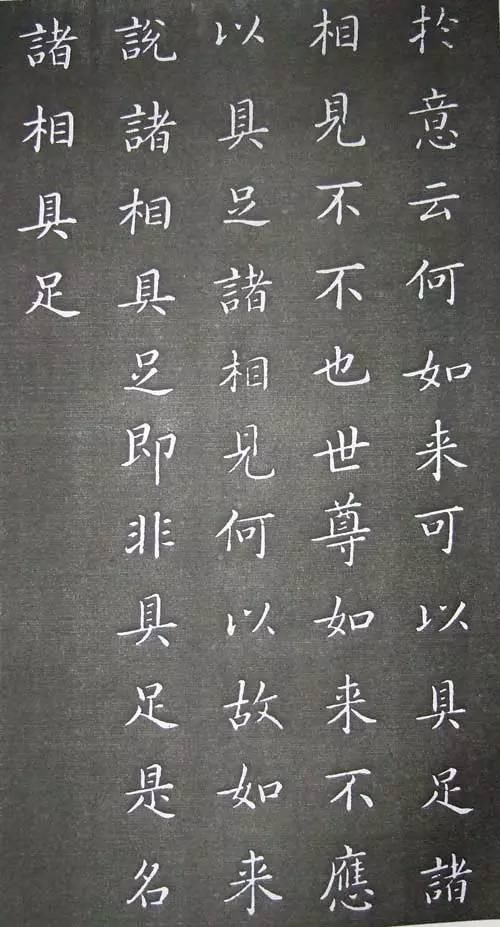 於意云何如来可以具足諸
相見不不也世尊如来不應
以具足諸相見何以故如来
說諸相具足即非具足是名
諸相具足